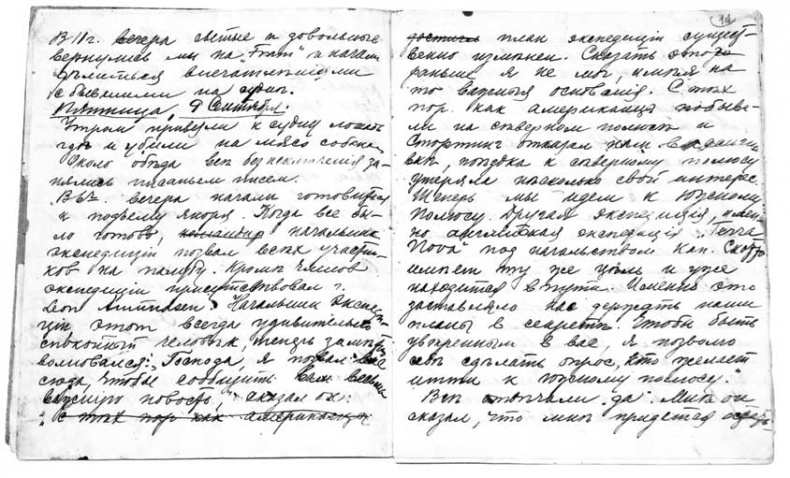 В 11 ч. вечера сытые и довольные
вернулись мы на "Fram" и начали
дѣлиться впечатлѣніями
с бывшими на судне.
Пятница, 9 Сентября.
Утром привезли к судну лошадь
где и убили на мясо собакам.
Около обѣда всѣ без исключенія за-
нялись писаньем писем.
В 6 ч. вечера начали готовиться
к подъему якоря. Когда все бы-
ло готово, начальник
экспедиціи позвал всѣх участни-
ков на палубу. Кромѣ членов
экспедиціи присутствовал г.
Leon Amundsen. Начальник экспеди-
ціи этот всегда удивительно
спокойный человѣк, теперь замѣтно
волновался: "Господа, я позвал вас
сюда, чтобы сообщить вам весьма
важную новость," сказал он:
с тѣх пор как американцы
14
план экспедиціи сущест-
венно измѣнен. Сказать это
раньше я не мог, имѣя на
то важныя основанія. С тѣх
пор как американцы побыва-
ли на сѣверном полюсѣ и
Стортинг отказал нам в
поѣздка к сѣверному полюсу
утеряла нѣсколько свой интерес.
Теперь мы идем к Южному
Полюсу. Другая экспедиція, имен-
но английская экспедиція "Terra
Nova" под начальством кап. Скотта
имѣет ту же цѣль и уже
находится в пути. Именно это
заставляло нас держать наши
планы в секретѣ. Чтобы быть
увѣренным в вас, я позволю
себѣ сдѣлать опрос, кто желает
итти к Южному полюсу."
Всѣ отвѣчали "да". Мнѣ он
сказал, что мнѣ придется